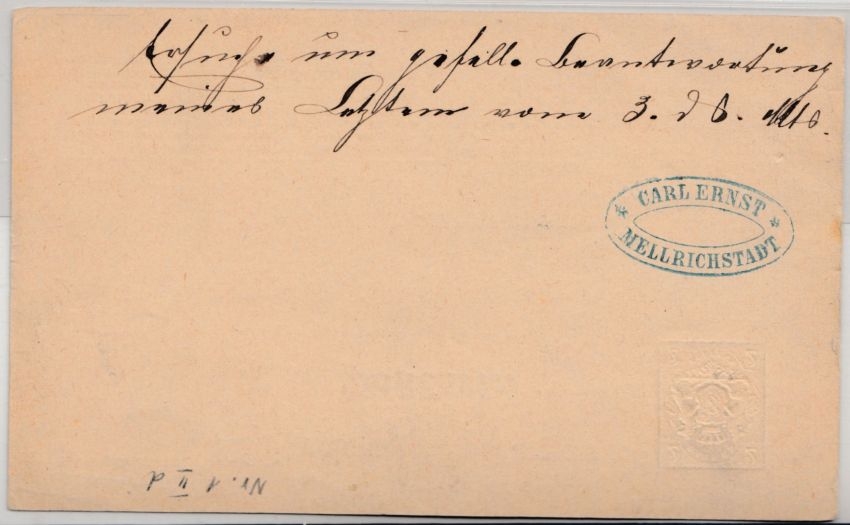 Ersuche um gefäll. Beantwortung
meines Letztem vom 3. ds. Mts.
* CARL ERNST *
MELLRICHSTADT
Nr. 1 II d